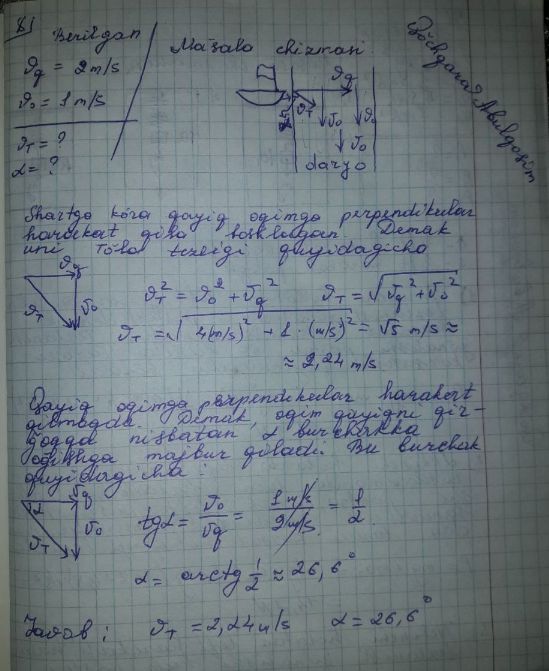 8) Berilgan
ϑq = 2 m/s
ϑo = 1 m/s
ϑT = ?
α = ?
Masala chizmasi
ϑq
ϑT
ϑo
ϑo
ϑo
daryo
Abulqosim
Shartga ko'ra qayiq oqimga perpendikular
harakat qila boshlagan. Demak
uni To'la tezligi quyidagicha
ϑq
ϑT
ϑo
ϑT² = ϑo² + ϑq² ϑT = √ϑq² + ϑo²
ϑT = √4(m/s)² + 1 · (m/s)² = √5 m/s ≈
≈ 2,24 m/s
Qayiq oqimga perpendikular harakat
qilmoqda. Demak, oqim qayiqni qir-
g'oqqa nisbatan α burchakka
og'ishga majbur qiladi. Bu burchak
quyidagicha:
ϑq
α
ϑo
ϑT
tgα = ϑo/ϑq = 1 m/s / 2 m/s = 1/2
α = arctg 1/2 ≈ 26,6°
Javob: ϑT = 2,24 m/s α = 26,6°